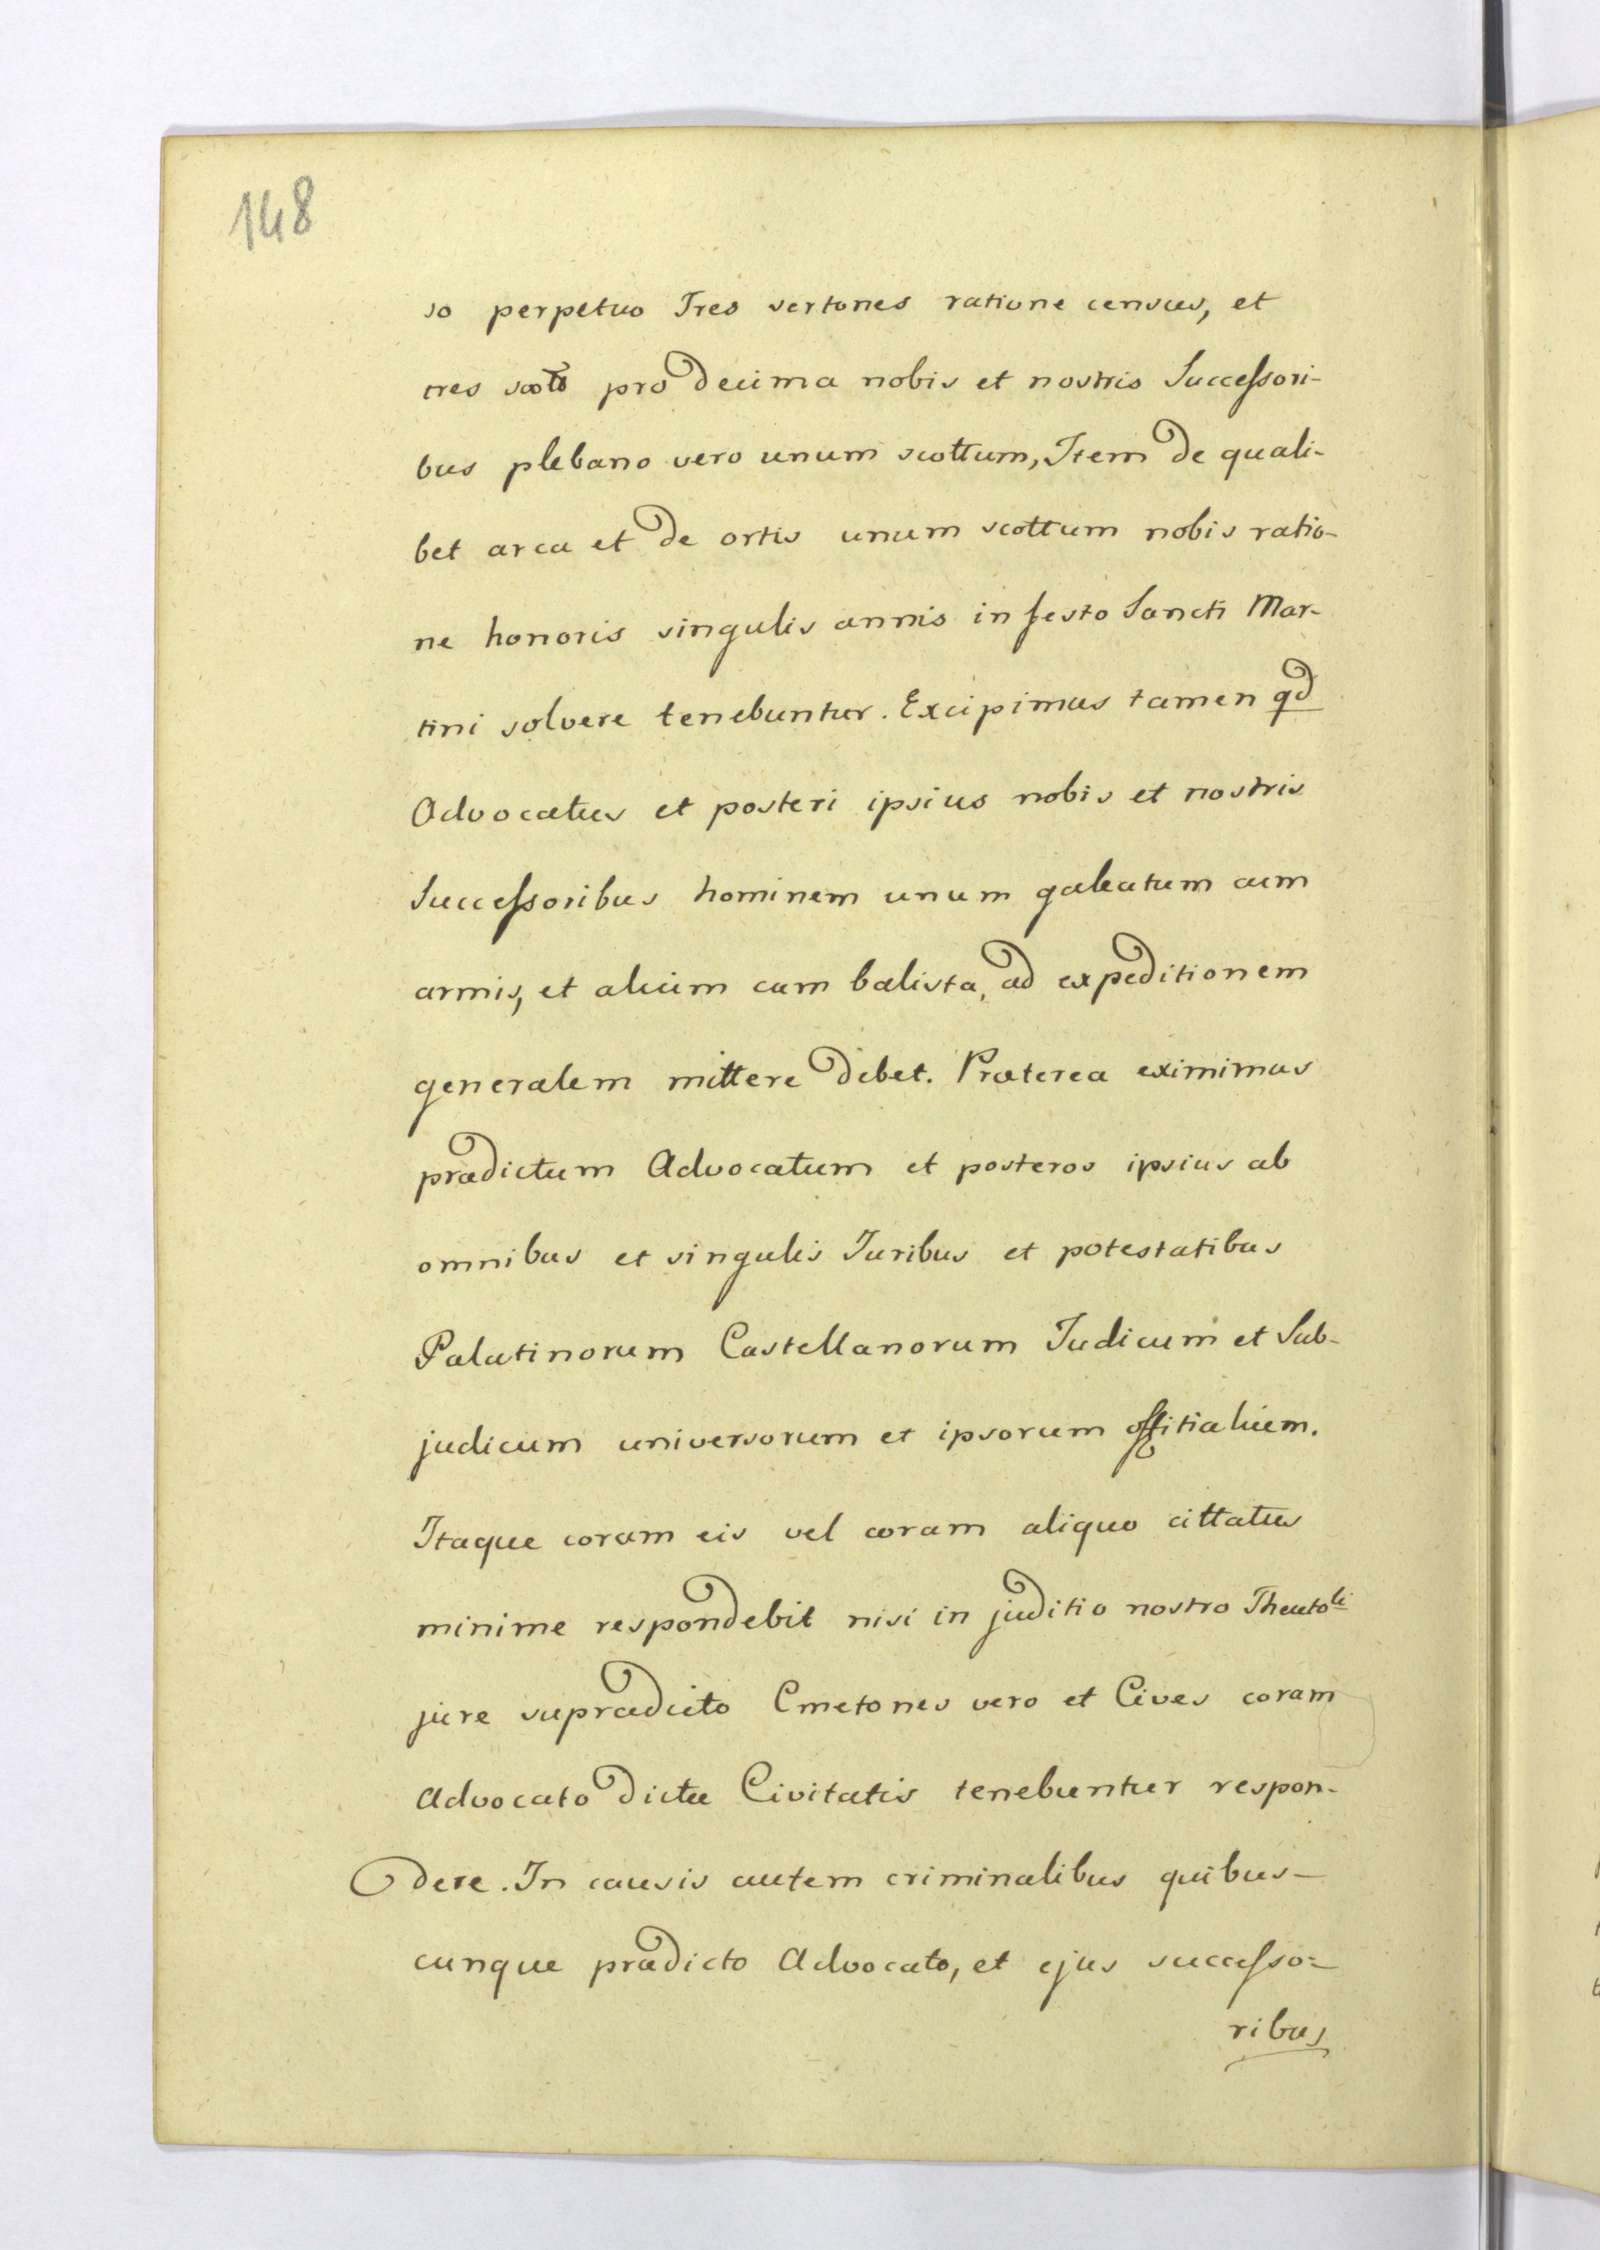 148
so perpetuo Tres vertones ratione census, et
tres scoto pro decima nobis et nostris Successori-
bus plebano vero unum scottum, Item de quali-
bet arca et de ortis unum scottum nobis ratio-
ne honoris singulis annis in festo Sancti Mar-
tini solvere tenebuntur. Excipimus tamen qd
Advocatus et posteri ipsius nobis et nostris
Successoribus hominem unum galeatum cum
armis, et alium cum balista, ad expeditionem
generalem mittere debet. Præterea eximimus
prædictum Advocatum et posteros ipsius ab
omnibus et singulis Juribus et potestatibus
Palatinorum Castellanorum Judicum et Sub-
judicum universorum et ipsorum offitialium.
Itaque coram eis vel coram aliquo cittatus
minime respondebit nisi in juditio nostro Theutoli
jure supradicto Cmetones vero et Cives coram
Advocato dictæ Civitatis tenebuntur respon-
dere. In causis autem criminalibus quibus-
cunque prædicto Advocato, et ejus successo-
ribus